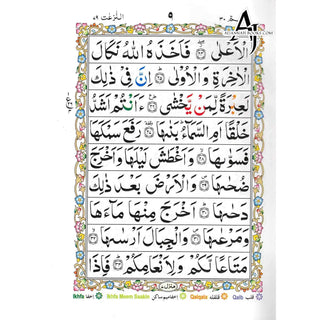 عم ٣٠ ٩ النّٰزعٰت ٧٩
الْاَعْلٰى ﴿٢٤﴾ فَاَخَذَهُ اللّٰهُ نَكَالَ
الْاٰخِرَةِ وَالْاُوْلٰى ﴿٢٥﴾ اِنَّ فِيْ ذٰلِكَ
لَعِبْرَةً لِّمَنْ يَّخْشٰى ﴿٢٦﴾ ءَاَنْتُمْ اَشَدُّ
خَلْقًا اَمِ السَّمَآءُ بَنٰىهَا ﴿٢٧﴾ رَفَعَ سَمْكَهَا
فَسَوّٰىهَا ﴿٢٨﴾ وَاَغْطَشَ لَيْلَهَا وَاَخْرَجَ
ضُحٰىهَا ﴿٢٩﴾ وَالْاَرْضَ بَعْدَ ذٰلِكَ
دَحٰىهَا ﴿٣٠﴾ اَخْرَجَ مِنْهَا مَآءَهَا
وَمَرْعٰىهَا ﴿٣١﴾ وَالْجِبَالَ اَرْسٰىهَا ﴿٣٢﴾
مَتَاعًا لَّكُمْ وَلِاَنْعَامِكُمْ ﴿٣٣﴾ فَاِذَا
Ikhfa اخفا Ikhfa Meem Saakin اخفا میم ساکن Qalqala قلقله Qalb قلب